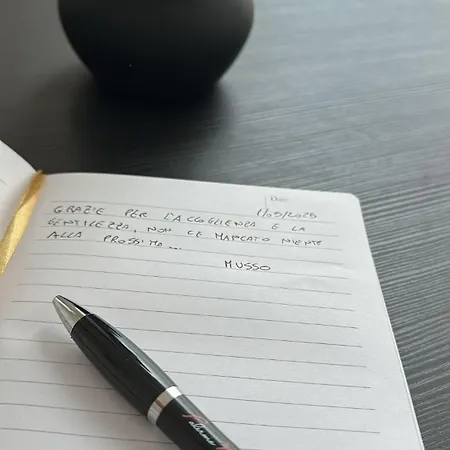 Date:
1/09/2025
GRAZIE PER L'ACCOGLIENZA E LA
GENTILEZZA, NON CE MANCATO NIENTE
ALLA PROSSIMA...
MUSSO
Palermo